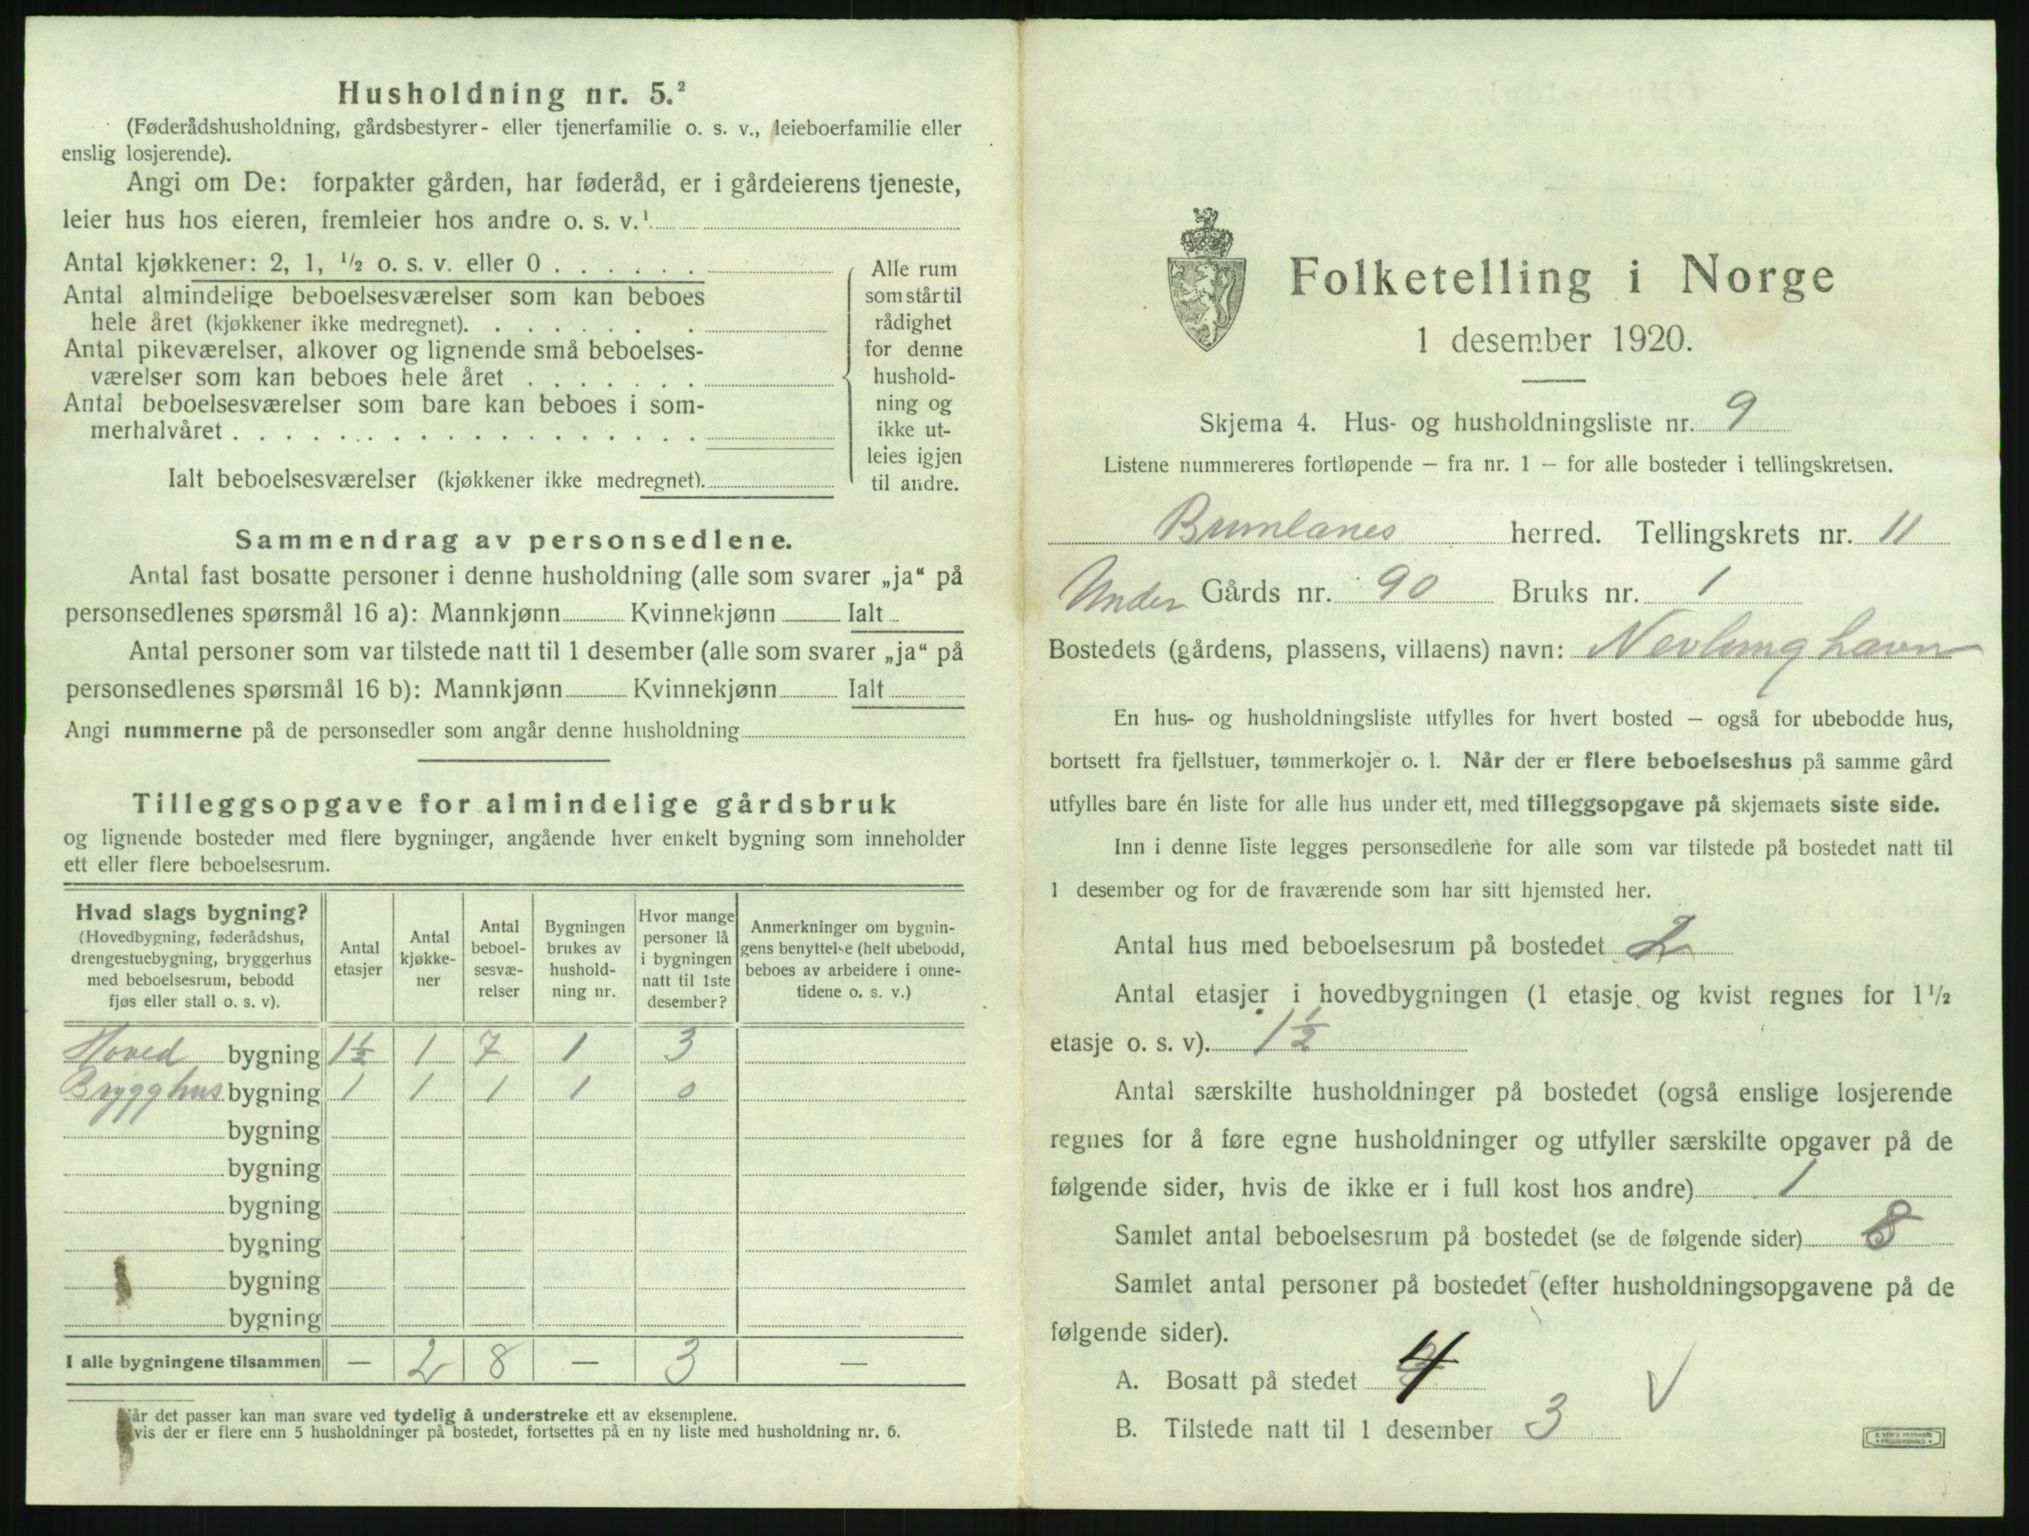 Husholdning nr. 5.²
(Føderådshusholdning, gårdsbestyrer- eller tjenerfamilie o. s. v., leieboerfamilie eller
enslig losjerende).
Angi om De: forpakter gården, har føderåd, er i gårdeierens tjeneste,
leier hus hos eieren, fremleier hos andre o. s. v.¹
Antal kjøkkener: 2, 1, ½ o. s. v. eller 0 . . . . . .
Antal almindelige beboelsesværelser som kan beboes
hele året (kjøkkener ikke medregnet). . . . . . . .
Antal pikeværelser, alkover og lignende små beboelses-
værelser som kan beboes hele året . . . . . . .
Antal beboelsesværelser som bare kan beboes i som-
merhalvåret . . . . . . . . . . . . . . . . .
Ialt beboelsesværelser (kjøkkener ikke medregnet).
Alle rum
som står til
rådighet
for denne
hushold-
ning og
ikke ut-
leies igjen
til andre.
Sammendrag av personsedlene.
Antal fast bosatte personer i denne husholdning (alle som svarer „ja“ på
personsedlenes spørsmål 16 a): Mannkjønn Kvinnekjønn Ialt
Antal personer som var tilstede natt til 1 desember (alle som svarer „ja“ på
personsedlenes spørsmål 16 b): Mannkjønn Kvinnekjønn Ialt
Angi nummerne på de personsedler som angår denne husholdning
Tilleggsopgave for almindelige gårdsbruk
og lignende bosteder med flere bygninger, angående hver enkelt bygning som inneholder
ett eller flere beboelsesrum.
Hvad slags bygning?
(Hovedbygning, føderådshus,
drengestuebygning, bryggerhus
med beboelsesrum, bebodd
fjøs eller stall o. s. v).
Antal
etasjer
Antal
kjøkke-
ner
Antal
beboel-
sesvæ-
relser
Bygningen
brukes av
hushold-
ning nr.
Hvor mange
personer lå
i bygningen
natt til 1ste
desember?
Anmerkninger om bygnin-
gens benyttelse (helt ubebodd,
beboes av arbeidere i onne-
tidene o. s. v.)
Hoved bygning 1½ 1 7 1 3
Brygghus bygning 1 1 1 1 0
bygning
bygning
bygning
bygning
bygning
bygning
I alle bygningene tilsammen — 2 8 — 3 —
Når det passer kan man svare ved tydelig å understreke ett av eksemplene.
vis der er flere enn 5 husholdninger på bostedet, fortsettes på en ny liste med husholdning nr. 6.
Folketelling i Norge
1 desember 1920.
Skjema 4. Hus- og husholdningsliste nr. 9
Listene nummereres fortløpende – fra nr. 1 – for alle bosteder i tellingskretsen.
Brunlanes herred. Tellingskrets nr. 11
Under Gårds nr. 90 Bruks nr. 1
Bostedets (gårdens, plassens, villaens) navn: Nevlunghavn
En hus- og husholdningsliste utfylles for hvert bosted – også for ubebodde hus,
bortsett fra fjellstuer, tømmerkojer o. l. Når der er flere beboelseshus på samme gård
utfylles bare én liste for alle hus under ett, med tilleggsopgave på skjemaets siste side.
Inn i denne liste legges personsedlene for alle som var tilstede på bostedet natt til
1 desember og for de fraværende som har sitt hjemsted her.
Antal hus med beboelsesrum på bostedet 2
Antal etasjer i hovedbygningen (1 etasje og kvist regnes for 1½
etasje o. s. v). 1½
Antal særskilte husholdninger på bostedet (også enslige losjerende
regnes for å føre egne husholdninger og utfyller særskilte opgaver på de
følgende sider, hvis de ikke er i full kost hos andre) 1
Samlet antal beboelsesrum på bostedet (se de følgende sider) 8
Samlet antal personer på bostedet (efter husholdningsopgavene på de
følgende sider).
A. Bosatt på stedet 4
B. Tilstede natt til 1 desember 3